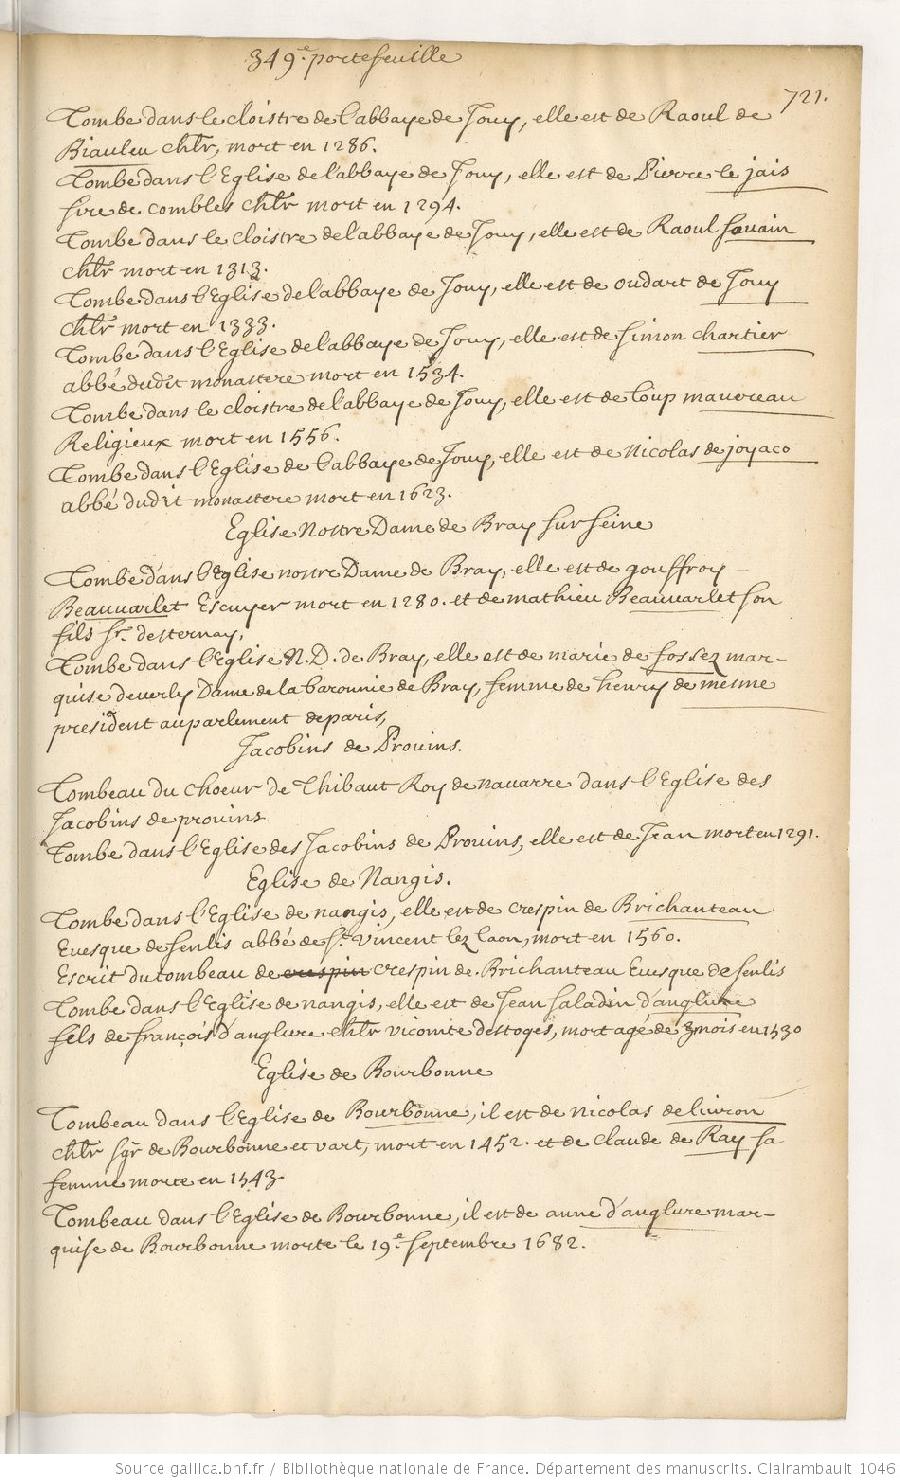 349.e portefeuille
721.
Tombe dans le cloistre de l'abbaye de Jouy, elle est de Raoul de
Biauleu chlr, mort en 1286.
Tombe dans l'Eglise de l'abbaye de Jouy, elle est de Pierre le jais
sire de combles chlr mort en 1294.
Tombe dans le cloistre de l'abbaye de Jouy, elle est de Raoul
chlr mort en 1313.
Tombe dans l'Eglise de l'abbaye de Jouy, elle est de oudart de Jouy
chlr mort en 1333.
Tombe dans l'Eglise de l'abbaye de Jouy, elle est de simon chartier
abbé dudit monastere mort en 1534.
Tombe dans le cloistre de l'abbaye de Jouy, elle est de Loup mauvreau
Religieux mort en 1556.
Tombe dans l'Eglise de l'abbaye de Jouy, elle est de Nicolas de joyaco
abbé dudit monastere mort en 1623.
Eglise Nostre Dame de Bray sur seine
Tombe dans l'Eglise nostre Dame de Bray, elle est de gouffroy
Beauuarlet Escuyer mort en 1280. et de mathieu Beauuarlet son
fils sr. desternay,
Tombe dans l'Eglise N. D. de Bray, elle est de marie de fossez mar-
quise deverly Dame de la baronnie de Bray, femme de henry de mesme
president au parlement de paris,
Jacobins de Prouins.
Tombeau du choeur de Thibaut Roy de nauarre dans l'Eglise des
Jacobins de prouins
Tombe dans l'Eglise des Jacobins de Prouins, elle est de Jean mort en 1291.
Eglise de Nangis.
Tombe dans l'Eglise de nangis, elle est de crespin de Brichanteau
Euesque de senlis abbé de St. vincent lez laon, mort en 1560.
Escrit du tombeau de crespin crespin de Brichanteau Euesque de senlis
Tombe dans l'Eglise de nangis, elle est de Jean saladin d'anglure
fils de françois d'anglure chlr vicomte destoges, mort agé de 3 mois en 1530
Eglise de Bourbonne
Tombeau dans l'Eglise de Bourbonne, il est de nicolas de liuron
chlr sgr de Bourbonne et vart, mort en 1452. et de claude de Ray sa
femme morte en 1543.
Tombeau dans l'Eglise de Bourbonne, il est de anne d'anglure mar-
quise de Bourbonne morte le 19e septembre 1682.
Source gallica.bnf.fr / Bibliothèque nationale de France. Département des manuscrits. Clairambault 1046